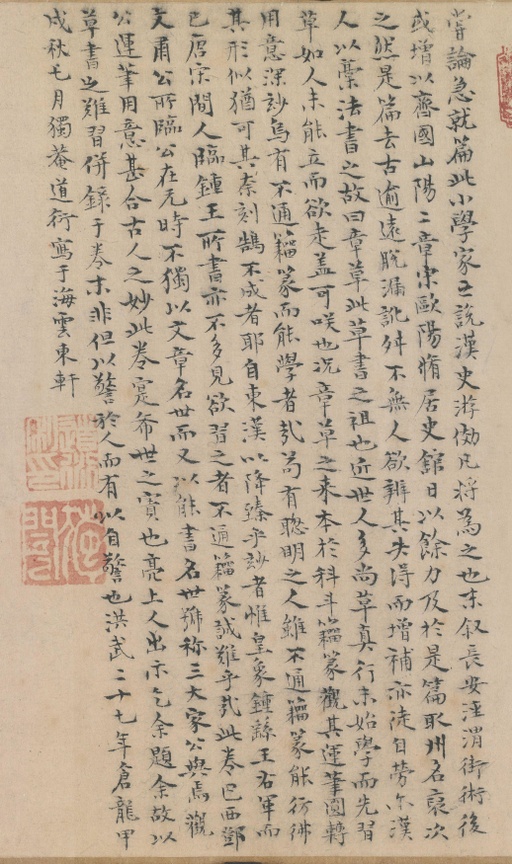 嘗論急就篇此小學家之說漢史游倣凡將為之也末叙長安涇渭街術後
或增以齊國山陽二章宋歐陽脩居史館日以餘力及於是篇取州名裒次
之然是篇去古逾遠脫漏訛舛不無人欲辨其失得而增補亦徒自勞尓漢
人以藁法書之故曰章草此草書之祖也近世人多尚草真行未始學而先習
草如人未能立而欲走盖可咲也况章草之来本於科斗籀篆觀其運筆圓轉
用意深妙烏有不通籀篆而能學者㢤茍有聦明之人雖不通籀篆能彷彿
其形似猶可其柰刻鵠不成者耶自東漢以降臻乎妙者惟皇象鍾繇王右軍而
已唐宋間人臨鍾王所書亦不多見欲習之者不通籀篆誠難乎㢤此卷巴西鄧
文肅公所臨公在元時不獨以文章名世而又以能書名世號称三大家公與焉觀
公運筆用意甚合古人之妙此卷寔希世之寳也亮上人出示乞余題余故以
草書之難習併錄于卷末非但以警於人而有以自警也洪武二十七年倉龍甲
戌秋七月獨菴道衍寫于海雲東軒